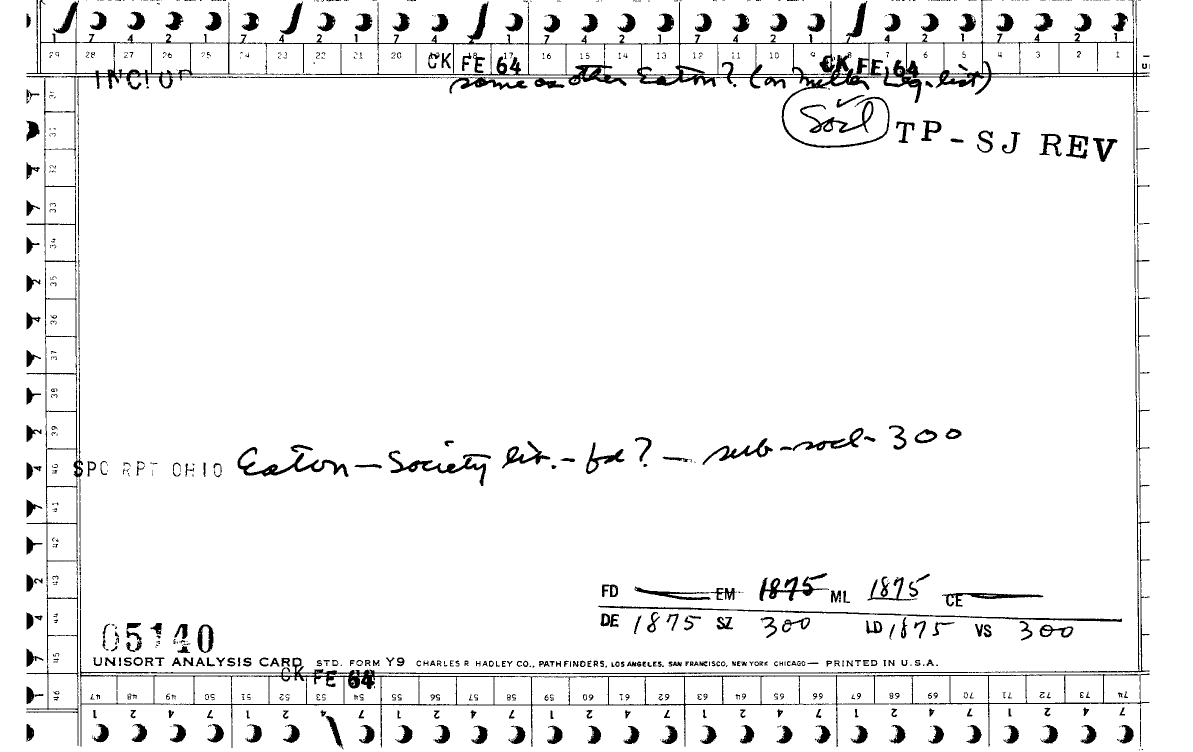 29 28 27 26 25 24 23 22 21 20 19 18 17 16 15 14 13 12 11 10 9 8 7 6 5 4 3 2 1
CK FE 64
CK FE 64
same as other Eaton? (on Miller Leg. list)
Socl TP-SJ REV
SPC RPT OHIO Eaton — Society lib. — fd? — sub-socl-300
FD EM 1875 ML 1875 CE
DE 1875 SZ 300 LD 1875 VS 300
05140
UNISORT ANALYSIS CARD STD. FORM Y9 CHARLES R. HADLEY CO., PATHFINDERS, LOS ANGELES, SAN FRANCISCO, NEW YORK CHICAGO — PRINTED IN U.S.A.
CK FE 64
47 48 49 50 51 52 53 54 55 56 57 58 59 60 61 62 63 64 65 66 67 68 69 70 71 72 73 74
1 2 4 7 1 2 4 7 1 2 4 7 1 2 4 7 1 2 4 7 1 2 4 7 1 2 4 7